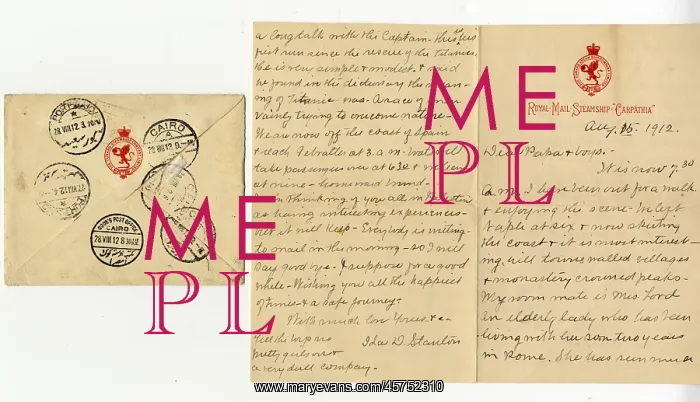 PORT SAID
28 VIII 12
CAIRO
28 VIII 12
COOK'S POST OFFICE
CAIRO
28 VIII 12 8
a long talk with the Captain - this is his
first run since the rescue of the Titanic.
He is very simple & modest - & said
he found in the dictionary the mean-
ing of Titanic - was - A race of men
vainly trying to overcome nature -
We are now off the coast of Spain
& reach Gibraltar at 3. a. m.
take passengers on at 6
at nine - homeward bound -
Thinking of you all in
as having interesting experiences -
it will keep - Everybody is writing -
to mail in the morning - so I will
say good bye - I suppose for a good
while - Wishing you all the happiest
of times - & a safe journey -
With much love Yours - &
Tell the boys no
pretty girls on &
a very dull company -
Ida D Stanton
ROYAL·MAIL·STEAMSHIP·"CARPATHIA"
Aug. 15. 1912.
Dear Papa & boys -
It is now 7.30
a. m. I have been out for a walk
& enjoying the scene - We left
Naples at six & now skirting
the coast & it is most interest-
ing, hill towns walled villages
& monastery crowned peaks -
My room mate is Mrs Lord
an elderly lady who has been
living with her son two years
in Rome. She has seen much
ME
PL
ME
PL
www.maryevans.com/45752310